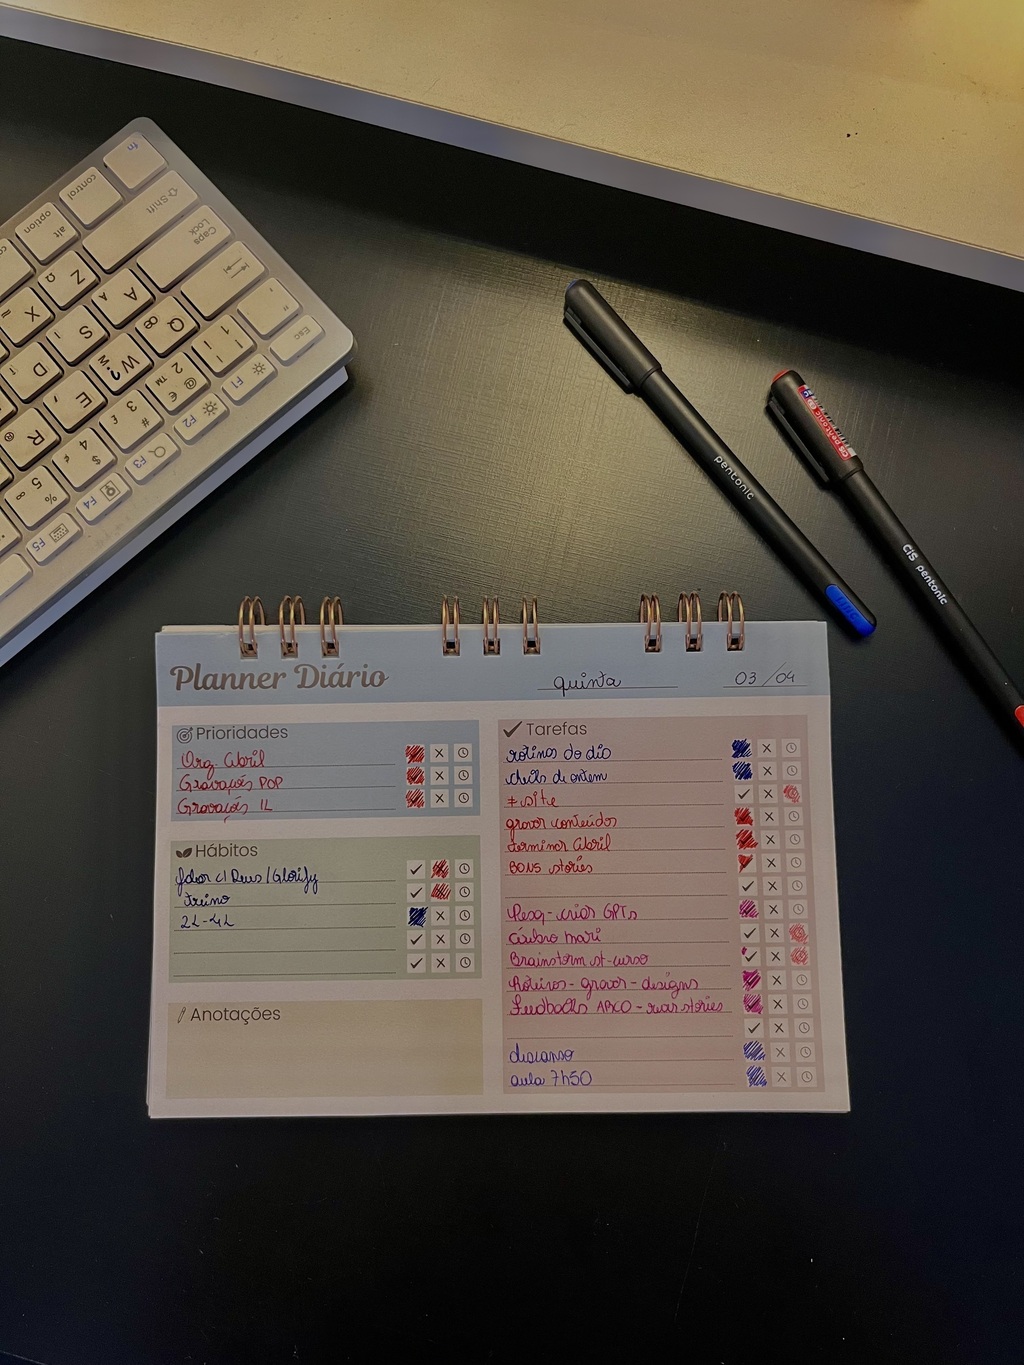 fn
control
⇧ Shift
alt
option
Caps
Lock
Z
Ω
X
A
S
D
Q
W
E
R
1
2
™
€
@
3
£
#
4
¢
$
5
∞
%
Esc
F1
F2
F3
F4
F5
pentonic
CiS pentonic
CiS pentonic
Planner Diário
quinta
03/04
Prioridades
Org. Abril
Gravações POP
Gravações IL
Hábitos
falar c/ Deus/Glorify
treino
2L-4L
Anotações
Tarefas
rotinas do dia
checks de ontem
≠ site
gravar conteúdos
terminar Abril
BONS stories
Pesq - criar GPTs
carrd mari
Brainstorm st-curso
Roteiros - gravar - designs
Feedbacks ARCO - stories
descanso
aula 7h50